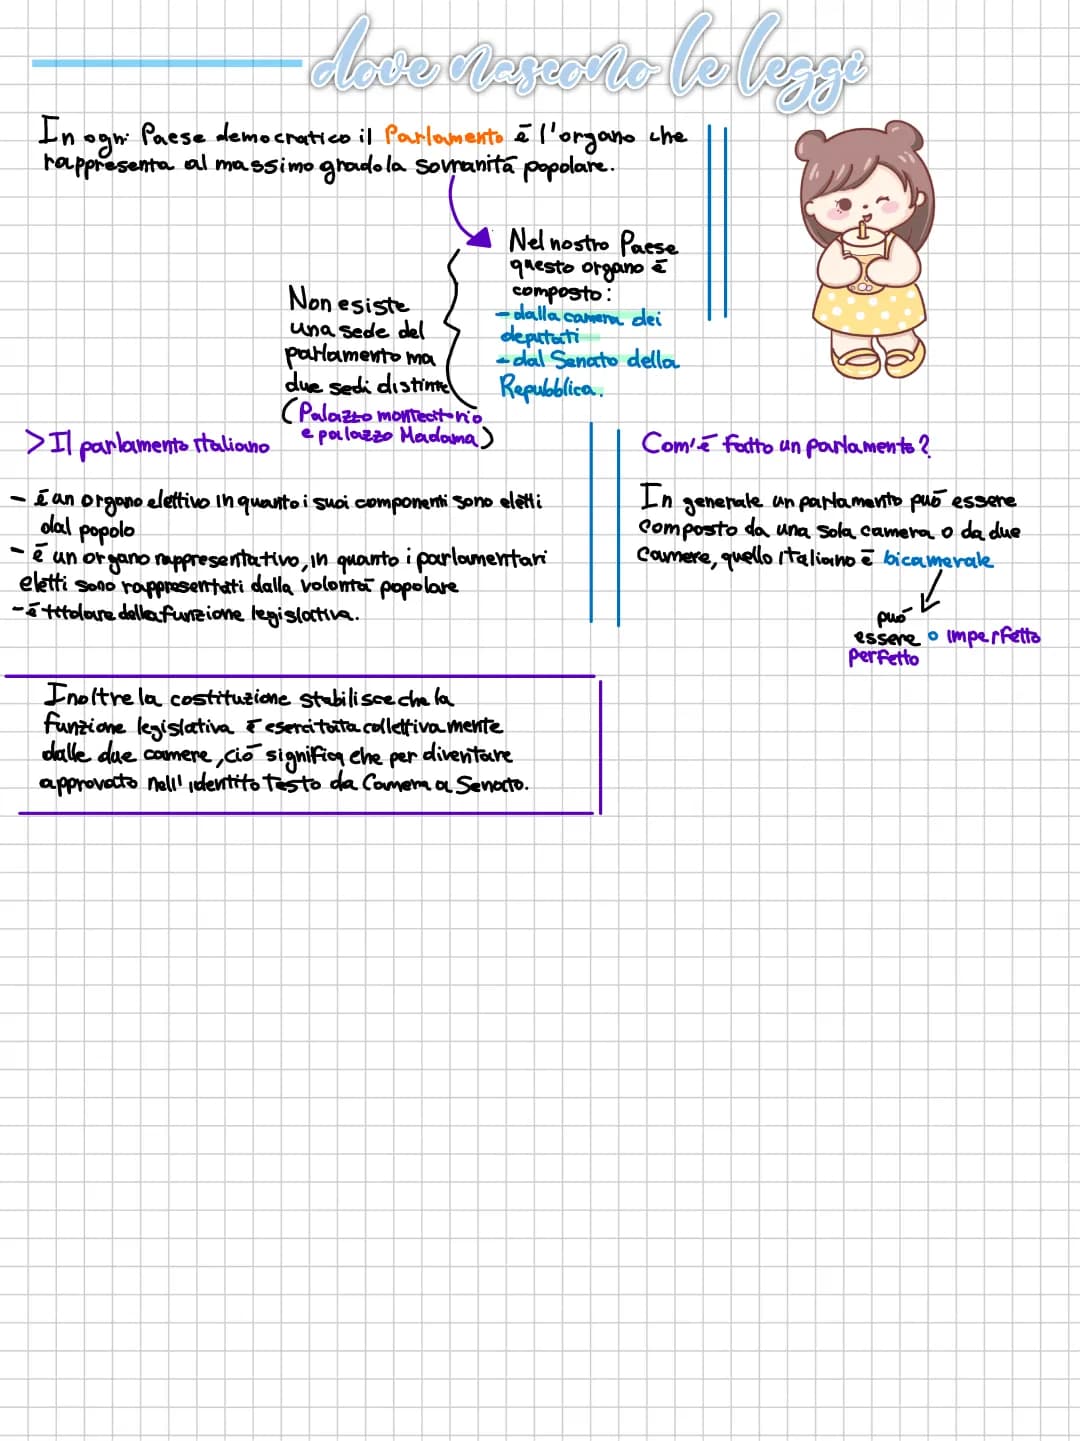 dove nascono le leggi
In ogni Paese democratico il Parlamento è l'organo che
rappresenta al massimo grado la sovranità popolare.
Nel nostro Paese
questo organo è
composto:
- dalla camera dei
deputati
- dal Senato della
Repubblica.
Non esiste
una sede del
parlamento ma
due sedi distinte
(Palazzo montecitorio
e palazzo Madama)
>Il parlamento italiano
- è an organo elettivo in quanto i suoi componenti sono eletti
dal popolo
- è un organo rappresentativo, in quanto i parlamentari
eletti sono rappresentati dalla volontà popolare
- è titolare della funzione legislativa.
Com'è fatto un parlamento?
In generale un parlamento può essere
composto da una sola camera o da due
camere, quello italiano è bicamerale
può
essere o imperfetto
perfetto
Inoltre la costituzione stabilisce che la
funzione legislativa è esercitata collettivamente
dalle due camere, ciò significa che per diventare
approvato nell' identito testo da Camera a Senato.